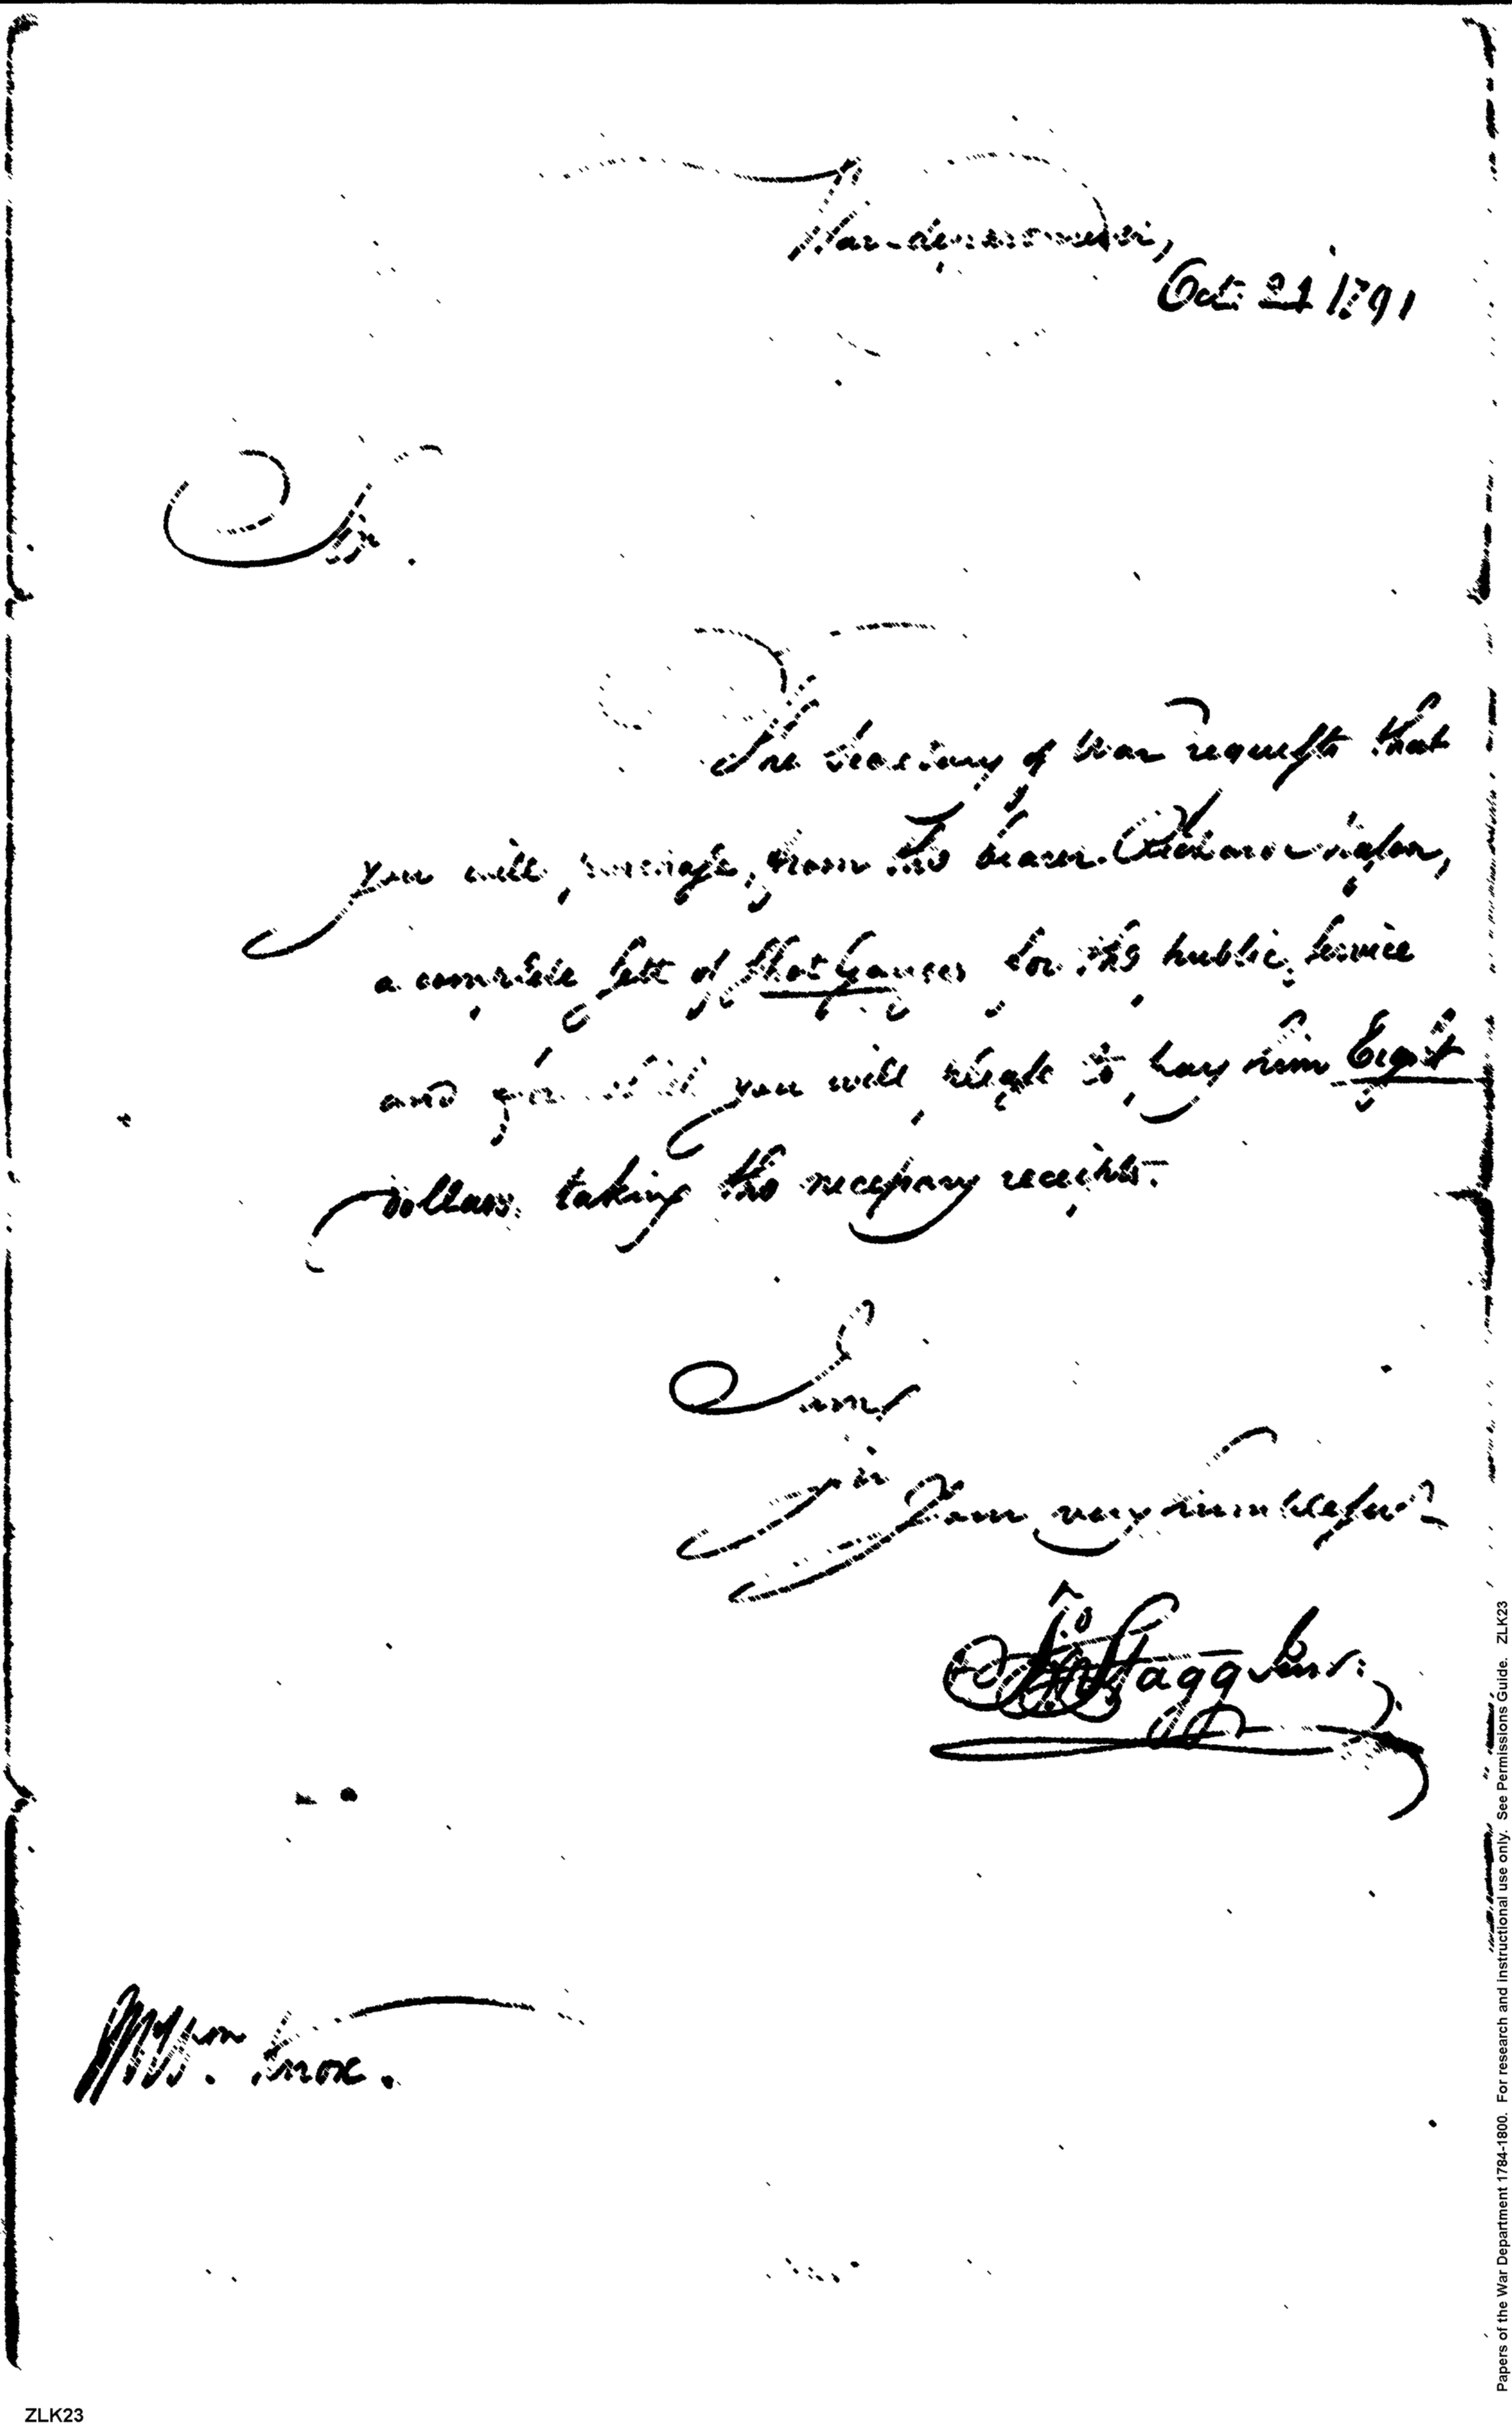 War department,
Oct: 21 1791
Sir.
The Secretary of War requests that
you will purchase, from the bearer Richard
a complete sett of Shot Gauges for the public service
and for which you will please to pay him Eight
dollars, taking the necessary receipts.
I am,
Sir
Your very humble servt
Jno Stagg Junr:
Mr Wm. Knox.
ZLK23
Papers of the War Department 1784-1800. For research and instructional use only. See Permissions Guide. ZLK23